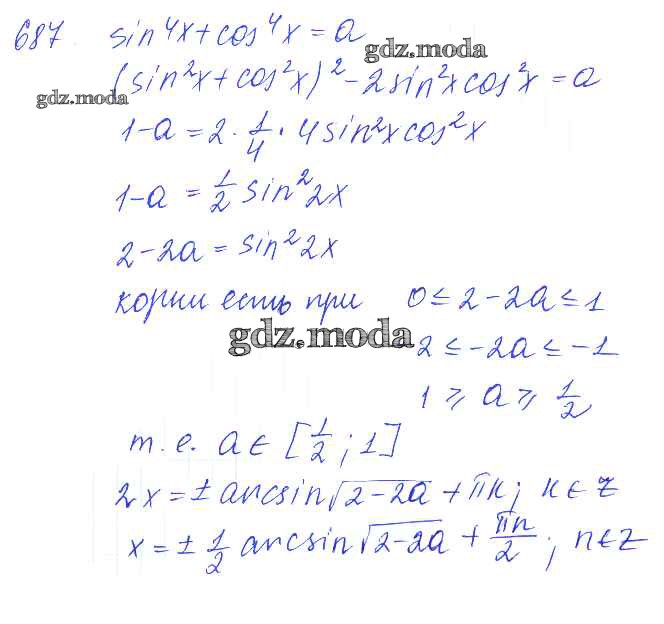 687. sin⁴x + cos⁴x = a
gdz.moda
(sin²x + cos²x)² - 2sin²xcos²x = a
gdz.moda
1-a = 2 · 1/4 · 4sin²xcos²x
1-a = 1/2 sin²2x
2-2a = sin²2x
корни есть при 0 ≤ 2-2a ≤ 1
gdz.moda
-2 ≤ -2a ≤ -1
1 ⩾ a ⩾ 1/2
т.е. a ∈ [1/2 ; 1]
2x = ± arcsin√(2-2a) + πk; k ∈ Z
x = ± 1/2 arcsin√(2-2a) + πn/2 ; n ∈ Z